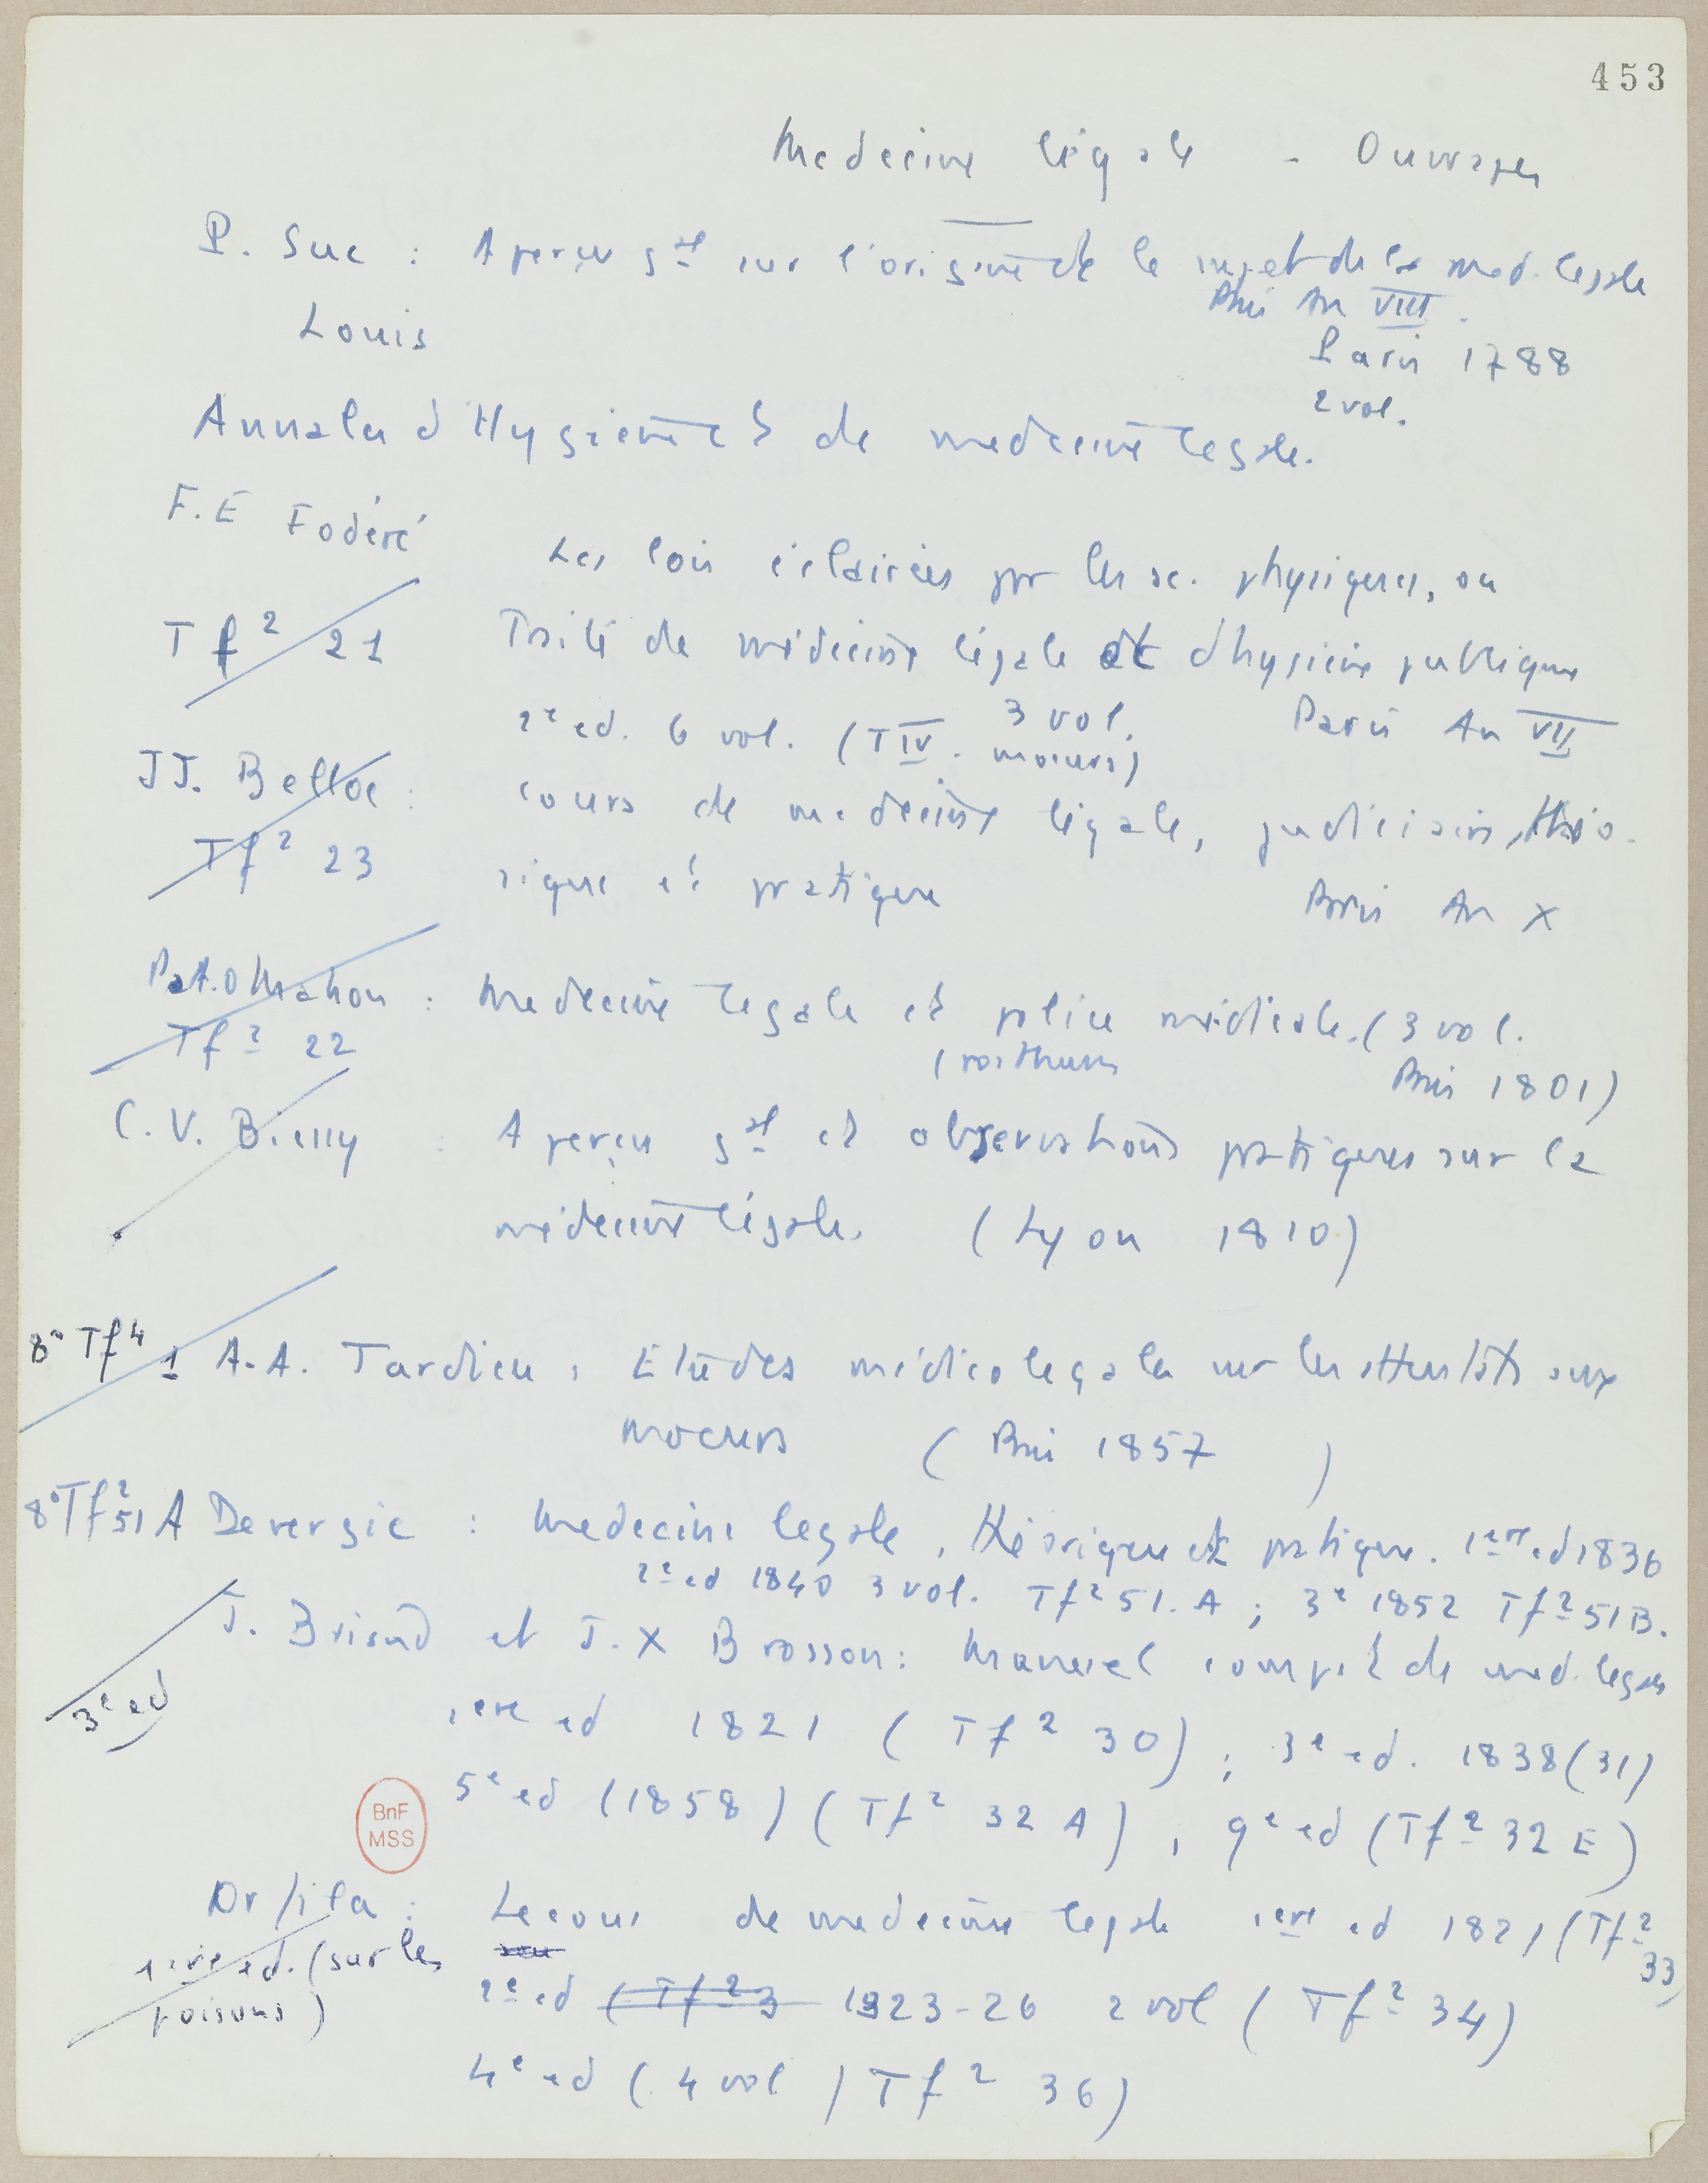 453
Medecine légale - Ouvrages
P. Sue : Aperçu gal sur l'origine et le sujet de la med. legale
Paris An VIII.
Louis
Paris 1788
2 vol.
Annales d'Hygiène et de medecine legale.
F.E Fodéré
Les lois éclairées par les sc. physiques, ou
Tf2 21 Traité de médecine légale et d'hygiène publique
3 vol. Paris An VII
2e ed. 6 vol. (T IV. moeurs)
JJ. Belloc : cours de medecine légale, judiciaire, théo-
Tf2 23 rique et pratique Paris An X
P.A.O Mahon : Medecine legale et police médicale. (3 vol.
Tf2 22 Paris 1801)
C. V. Biessy : Aperçu gal et observations pratiques sur la
médecine légale. (Lyon 1810)
8° Tf4 1 A.A. Tardieu : Etudes médico legales sur les attentats aux
moeurs (Paris 1857 )
8° Tf2 51 A Devergie : Medecine legale, théorique et pratique. 1ere ed 1836
2e ed 1840 3 vol. Tf2 51. A ; 3e 1852 Tf2 51 B.
J. Briand et J. X Brosson : Manuel complet de med. legale
3e ed
1ere ed 1821 (Tf2 30) ; 3e ed. 1838 (31)
5e ed (1858) (Tf2 32 A) , 9e ed (Tf2 32 E)
BnF
MSS
Orfila : Lecons de medecine legale 1ere ed 1821 (Tf2
33)
1ere ed. (sur les
poisons)
2e ed (Tf2 3 1823-26 2 vol (Tf2 34)
4e ed (4 vol / Tf2 36)